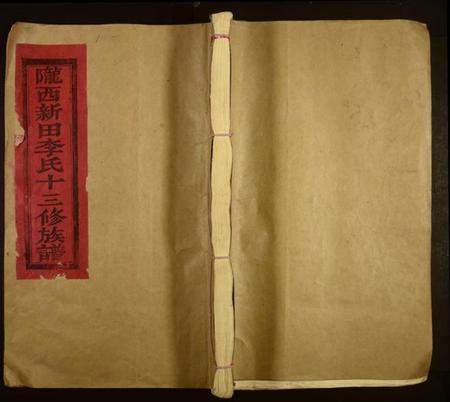 隴西新田李氏十三修族譜